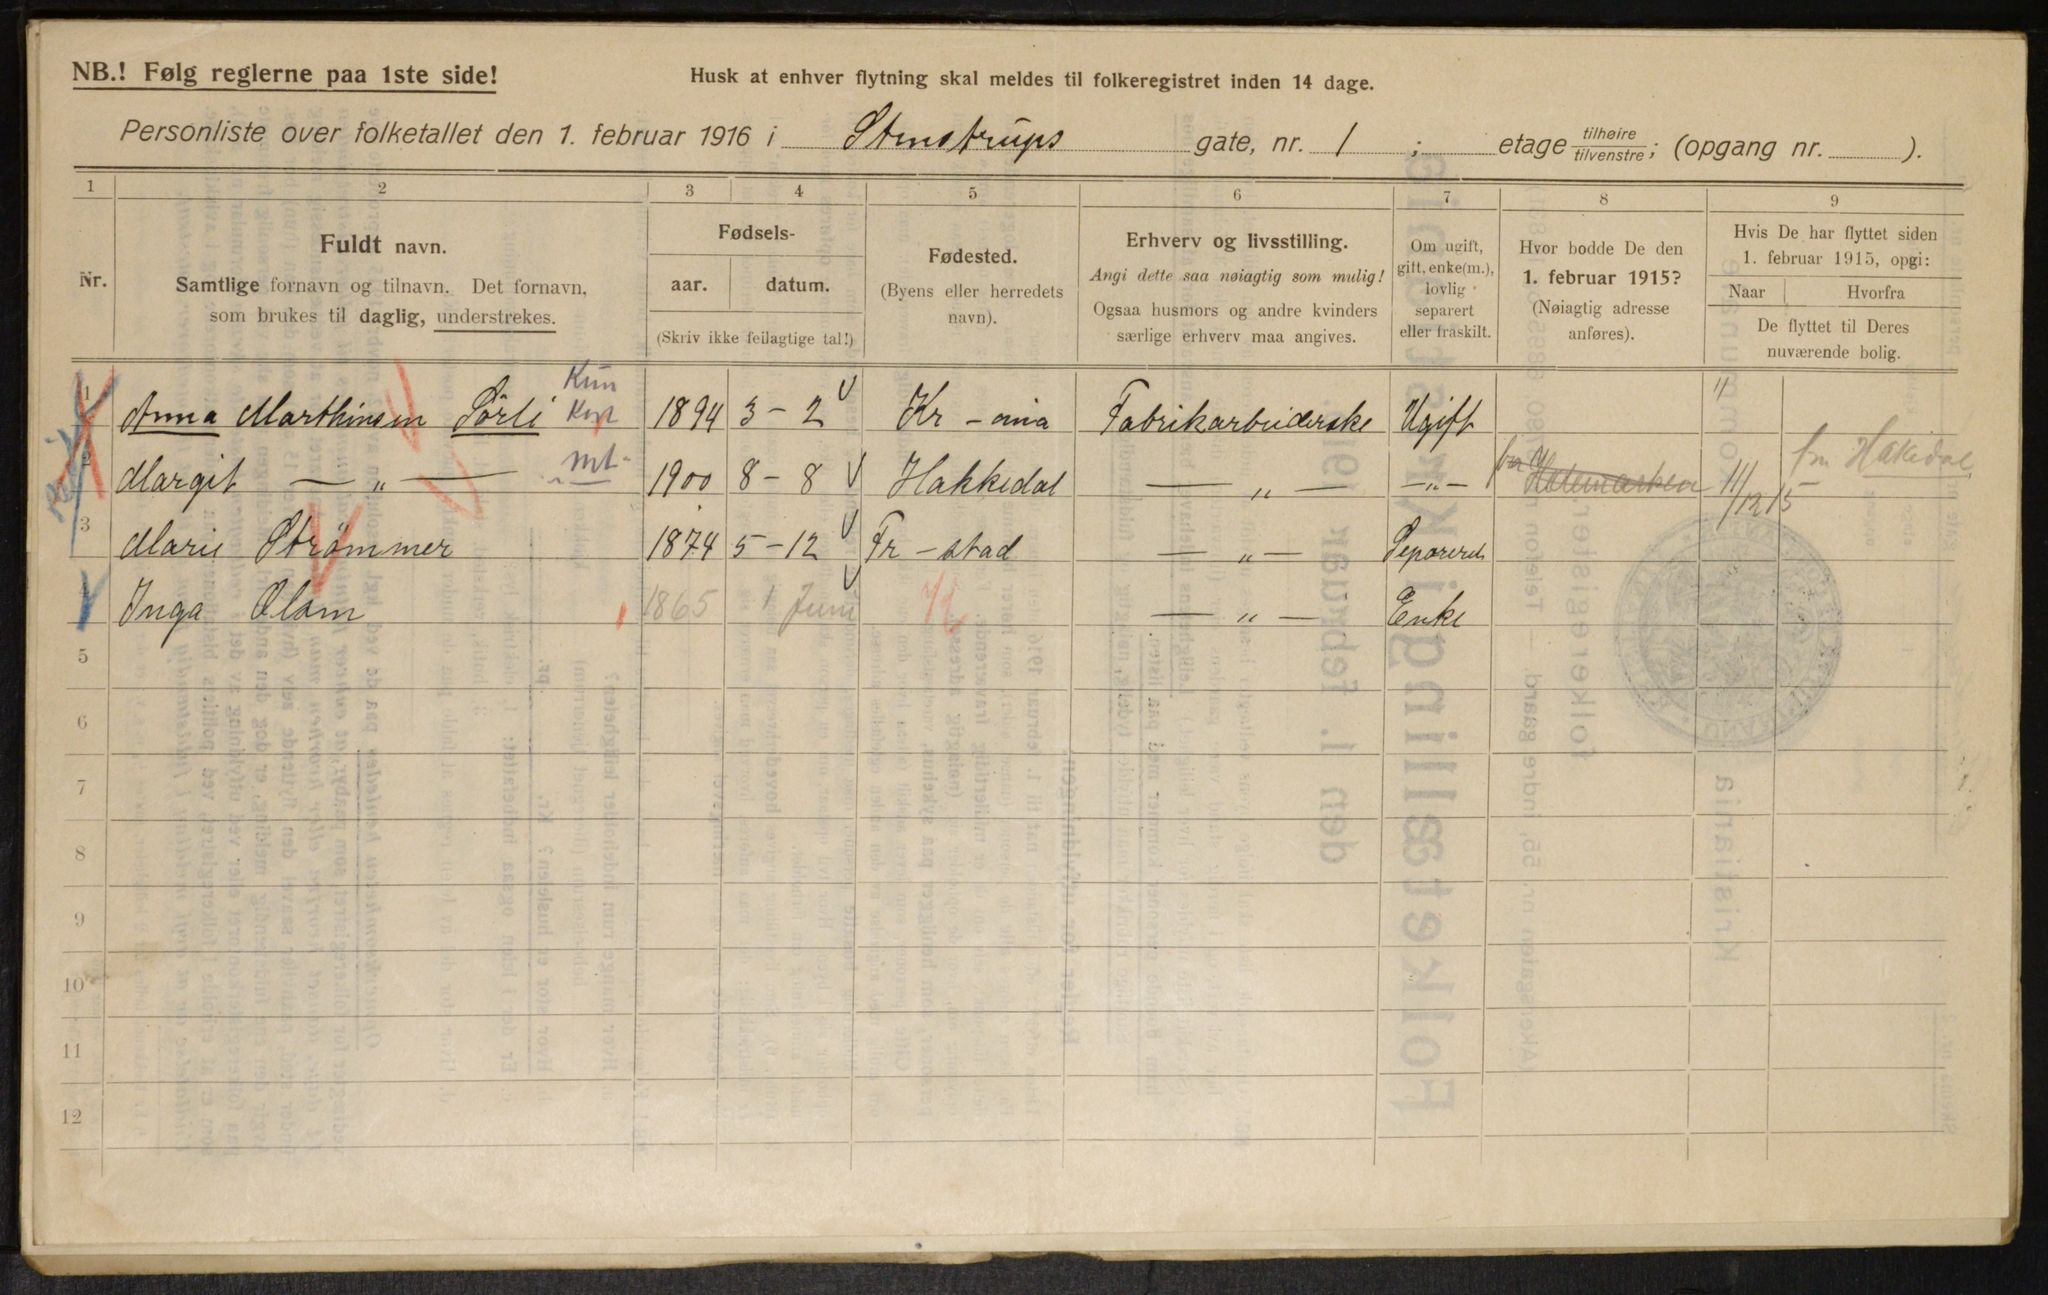 NB.! Følg reglerne paa 1ste side!
Husk at enhver flytning skal meldes til folkeregistret inden 14 dage.
Personliste over folketallet den 1. februar 1916 i Stenstrups gate, nr. 1 ; etage tilhøire tilvenstre; (opgang nr. ).
1 2 3 4 5 6 7 8 9
Nr.
Fuldt navn.
Samtlige fornavn og tilnavn. Det fornavn,
som brukes til daglig, understrekes.
Fødsels-
aar. datum.
(Skriv ikke feilagtige tal!)
Fødested.
(Byens eller herredets
navn).
Erhverv og livsstilling.
Angi dette saa nøiagtig som mulig!
Ogsaa husmors og andre kvinders
særlige erhverv maa angives.
Om ugift,
gift, enke(m.),
lovlig
separert
eller fraskilt.
Hvor bodde De den
1. februar 1915?
(Nøiagtig adresse
anføres).
Hvis De har flyttet siden
1. februar 1915, opgi:
Naar Hvorfra
De flyttet til Deres
nuværende bolig.
1 Anna Marthinsen Sörli 1894 3 - 2 Kr - ania Fabrikarbeiderske Ugift
2 Margit — „ — 1900 8 - 8 Hakkedal — „ — — „ — 11/12 15 fra Hakedal
3 Marie Strömmer 1874 5 - 12 Fr - stad — „ — Separeret
Inga Olsen 1865 1 Juni — „ — Enke
5
6
7
8
9
10
11
12